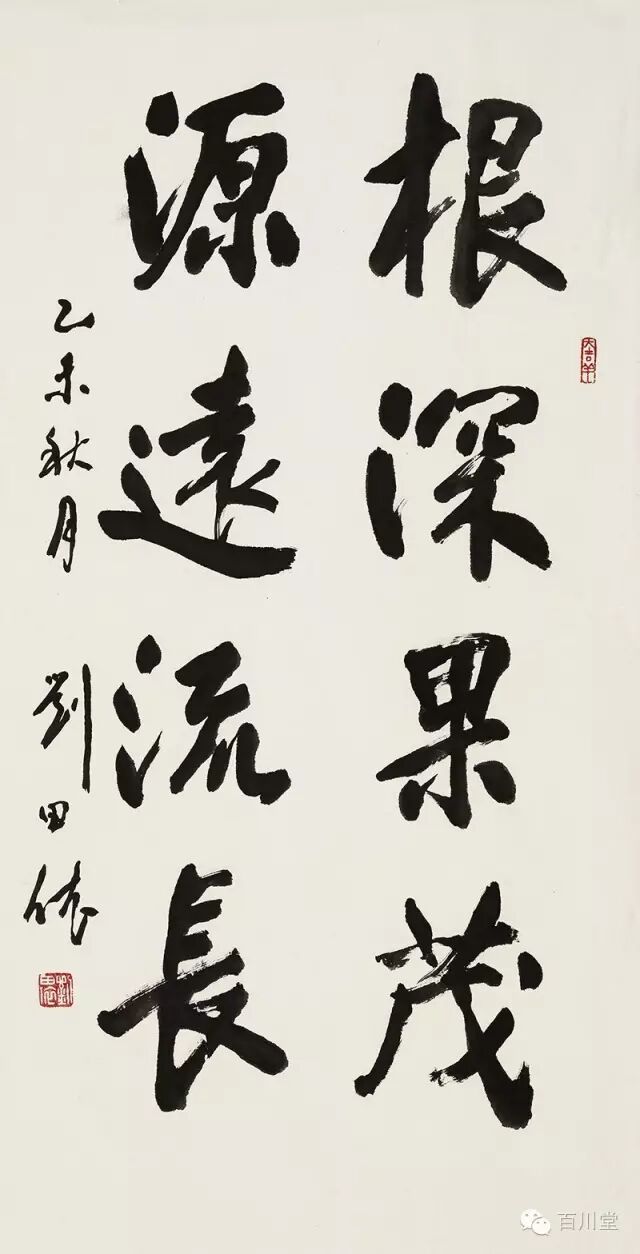 根深果茂
源遠流長
乙未秋月 劉田依
百川堂